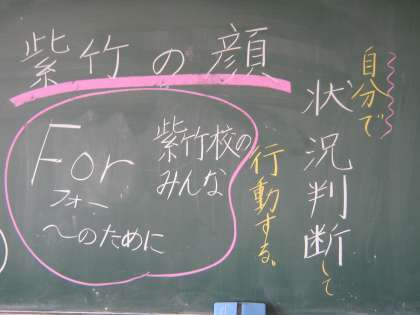 紫竹の顔
自分で
状況判断して
行動する。
For
フォー
〜のために
紫竹校の
みんな